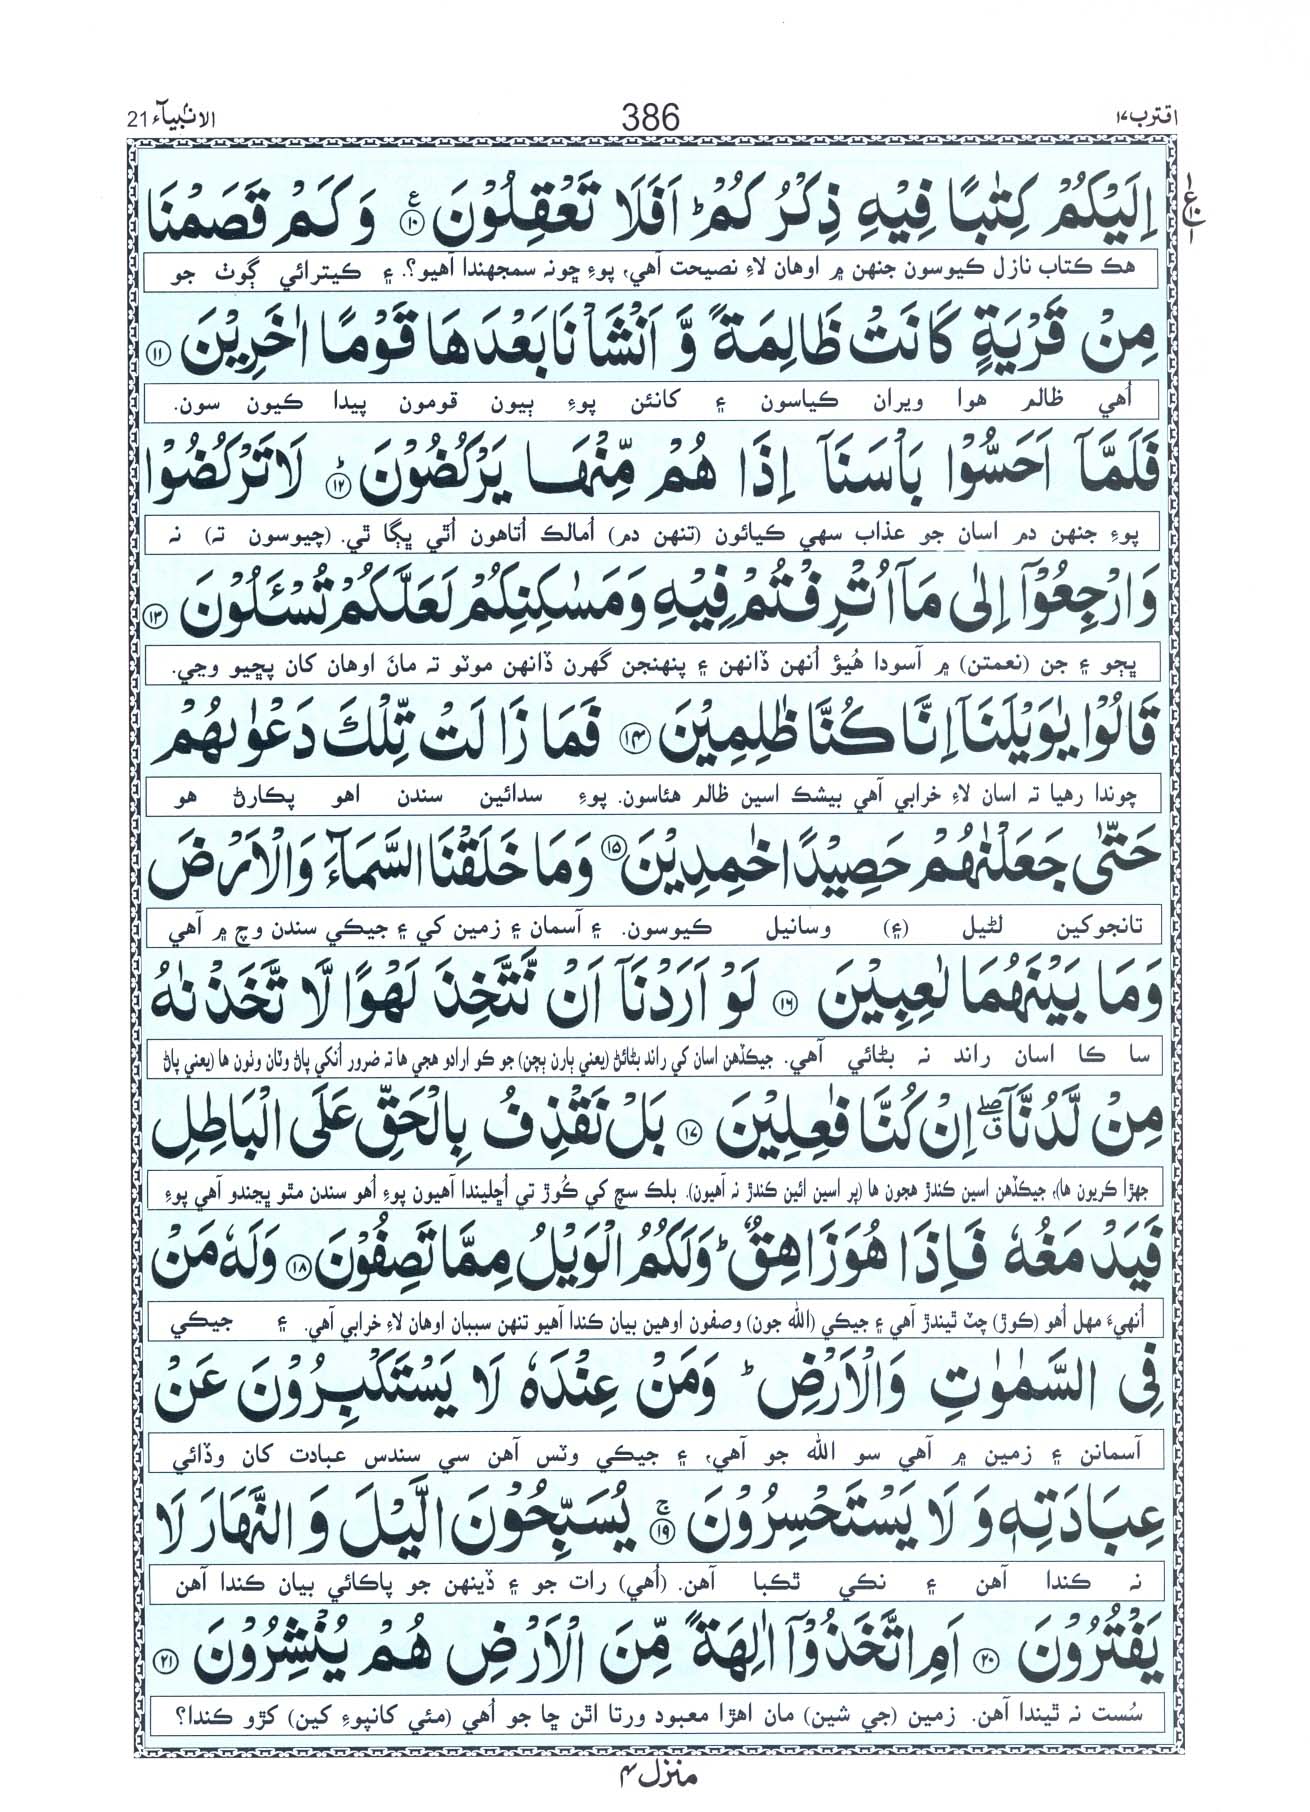 اقترب ١٧
386
الانبیآء 21
اِلَيْكُمْ كِتٰبًا فِيْهِ ذِكْرُكُمْ ؕ اَفَلَا تَعْقِلُوْنَ ۝۱۰ وَكَمْ قَصَمْنَا
هڪ ڪتاب نازل ڪيوسون جنهن ۾ اوهان لاءِ نصيحت آهي، پوءِ ڇونہ سمجهندا آهيو؟. ۽ ڪيترائي ڳوٺ جو
مِنْ قَرْيَةٍ كَانَتْ ظَالِمَةً وَّ اَنْشَاْنَا بَعْدَهَا قَوْمًا اٰخَرِيْنَ ۝۱۱
اُهي ظالم هوا ويران ڪياسون ۽ کانئن پوءِ ٻيون قومون پيدا ڪيون سون.
فَلَمَّاۤ اَحَسُّوْا بَاْسَنَاۤ اِذَا هُمْ مِّنْهَا يَرْكُضُوْنَ ؕ۝۱۲ لَا تَرْكُضُوْا
پوءِ جنهن دم اسان جو عذاب سهي ڪيائون (تنهن دم) اُمالڪ اُتاهون اُٿي ڀڳا ٿي. (چيوسون تہ) نہ
وَارْجِعُوْۤا اِلٰى مَاۤ اُتْرِفْتُمْ فِيْهِ وَمَسٰكِنِكُمْ لَعَلَّكُمْ تُسْـَٔلُوْنَ ۝۱۳
ڀڄو ۽ جن (نعمتن) ۾ آسودا هُيؤ اُنهن ڏانهن ۽ پنهنجن گهرن ڏانهن موٽو تہ مانَ اوهان کان پڇيو وڃي.
قَالُوْا يٰوَيْلَنَاۤ اِنَّا كُنَّا ظٰلِمِيْنَ ۝۱۴ فَمَا زَالَتْ تِّلْكَ دَعْوٰىهُمْ
چوندا رهيا تہ اسان لاءِ خرابي آهي بيشڪ اسين ظالم هئاسون. پوءِ سدائين سندن اهو پڪارڻ هو
حَتّٰى جَعَلْنٰهُمْ حَصِيْدًا خٰمِدِيْنَ ۝۱۵ وَمَا خَلَقْنَا السَّمَآءَ وَالْاَرْضَ
تانجوڪين لڻيل (۽) وسانيل ڪيوسون. ۽ آسمان ۽ زمين کي ۽ جيڪي سندن وچ ۾ آهي
وَمَا بَيْنَهُمَا لٰعِبِيْنَ ۝۱۶ لَوْ اَرَدْنَاۤ اَنْ نَّتَّخِذَ لَهْوًا لَّا تَّخَذْنٰهُ
سا ڪا اسان راند نہ بڻائي آهي. جيڪڏهن اسان کي راند بڻائڻ (يعني ٻارن ٻچن) جو ڪو ارادو هجي ها تہ ضرور اُنکي پاڻ وٽان وٺون ها (يعني پاڻ
مِنْ لَّدُنَّاۤ ۖۗ اِنْ كُنَّا فٰعِلِيْنَ ۝۱۷ بَلْ نَقْذِفُ بِالْحَقِّ عَلَى الْبَاطِلِ
جهڙا ڪريون ها)، جيڪڏهن اسين ڪندڙ هجون ها (پر اسين ائين ڪندڙ نہ آهيون). بلڪ سچ کي ڪُوڙ تي اُڇليندا آهيون پوءِ اُهو سندن مٿو ڀڃندو آهي پوءِ
فَيَدْمَغُهٗ فَاِذَا هُوَ زَاهِقٌ ؕ وَلَكُمُ الْوَيْلُ مِمَّا تَصِفُوْنَ ۝۱۸ وَلَهٗ مَنْ
اُنهيءَ مهل اُهو (ڪوڙ) چٽ ٿيندڙ آهي ۽ جيڪي (الله جون) وصفون اوهين بيان ڪندا آهيو تنهن سببان اوهان لاءِ خرابي آهي. ۽ جيڪي
فِى السَّمٰوٰتِ وَالْاَرْضِ ؕ وَمَنْ عِنْدَهٗ لَا يَسْتَكْبِرُوْنَ عَنْ
آسمانن ۽ زمين ۾ آهي سو الله جو آهي، ۽ جيڪي وٽس آهن سي سندس عبادت کان وڏائي
عِبَادَتِهٖ وَ لَا يَسْتَحْسِرُوْنَ ۚ۝۱۹ يُسَبِّحُوْنَ الَّيْلَ وَ النَّهَارَ لَا
نہ ڪندا آهن ۽ نڪي ٿڪبا آهن. (اُهي) رات جو ۽ ڏينهن جو پاڪائي بيان ڪندا آهن
يَفْتُرُوْنَ ۝۲۰ اَمِ اتَّخَذُوْۤا اٰلِهَةً مِّنَ الْاَرْضِ هُمْ يُنْشِرُوْنَ ۝۲۱
سُست نہ ٿيندا آهن. زمين (جي شين) مان اهڙا معبود ورتا اٿن ڇا جو اُهي (مئي کانپوءِ کين) کڙو ڪندا؟
منزل ۴